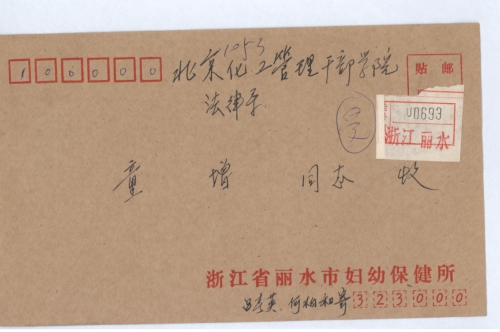 1053
100000 北京化工管理干部学院 贴邮
法律系
(受)
V0693
浙江丽水
童增 同志 收
浙江省丽水市妇幼保健所
何柏和寄 323000